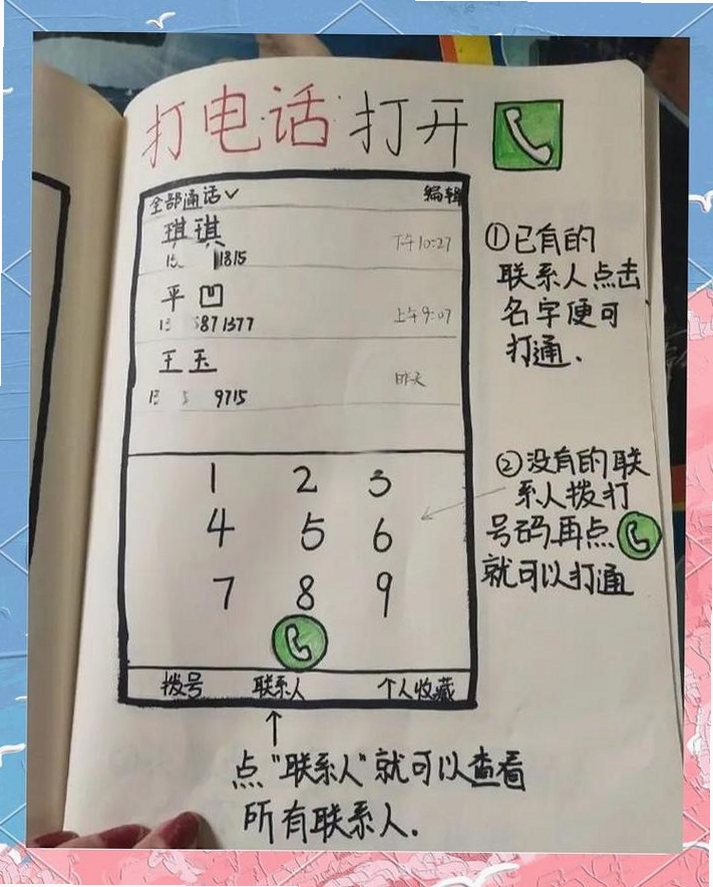 打电话 打开
全部通话 编辑
琪琪
下午10:27
1815
平凹
上午9:07
13 5871377
王玉
昨天
13 5 9715
①已有的
联系人点击
名字便可
打通.
1 2 3
4 5 6
7 8 9
②没有的联
系人拨打
号码再点
就可以打通
拨号 联系人 个人收藏
点"联系人"就可以查看
所有联系人.